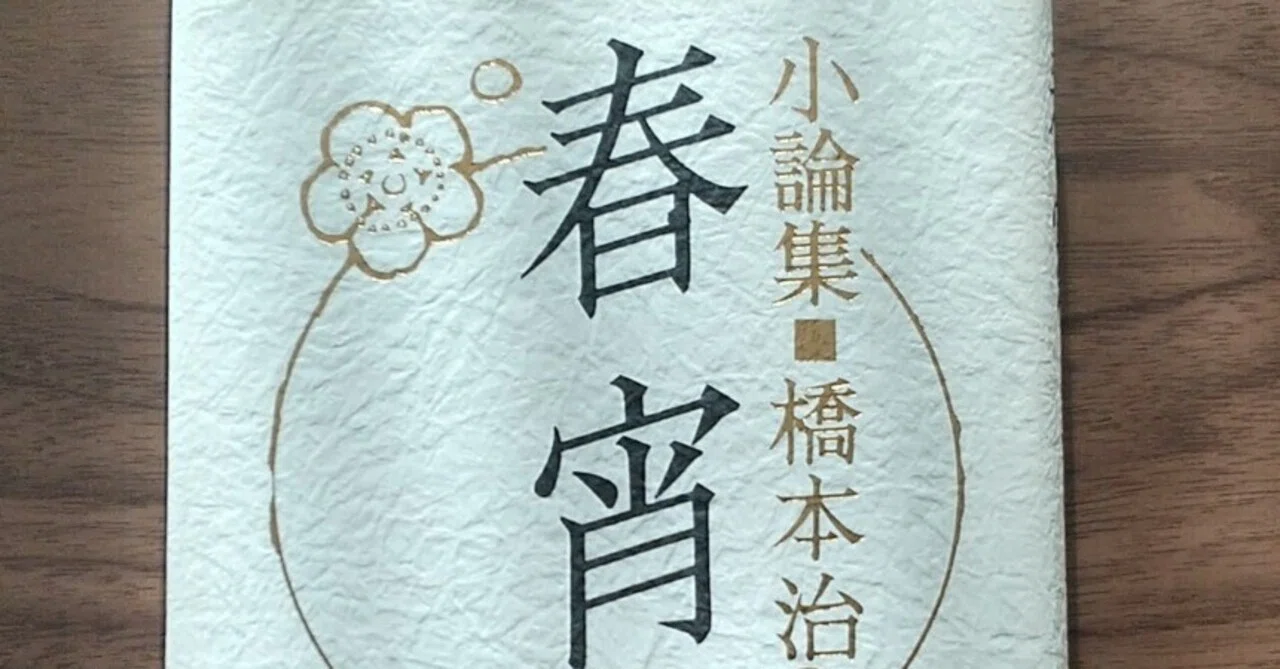 小論集■橋本治
春宵